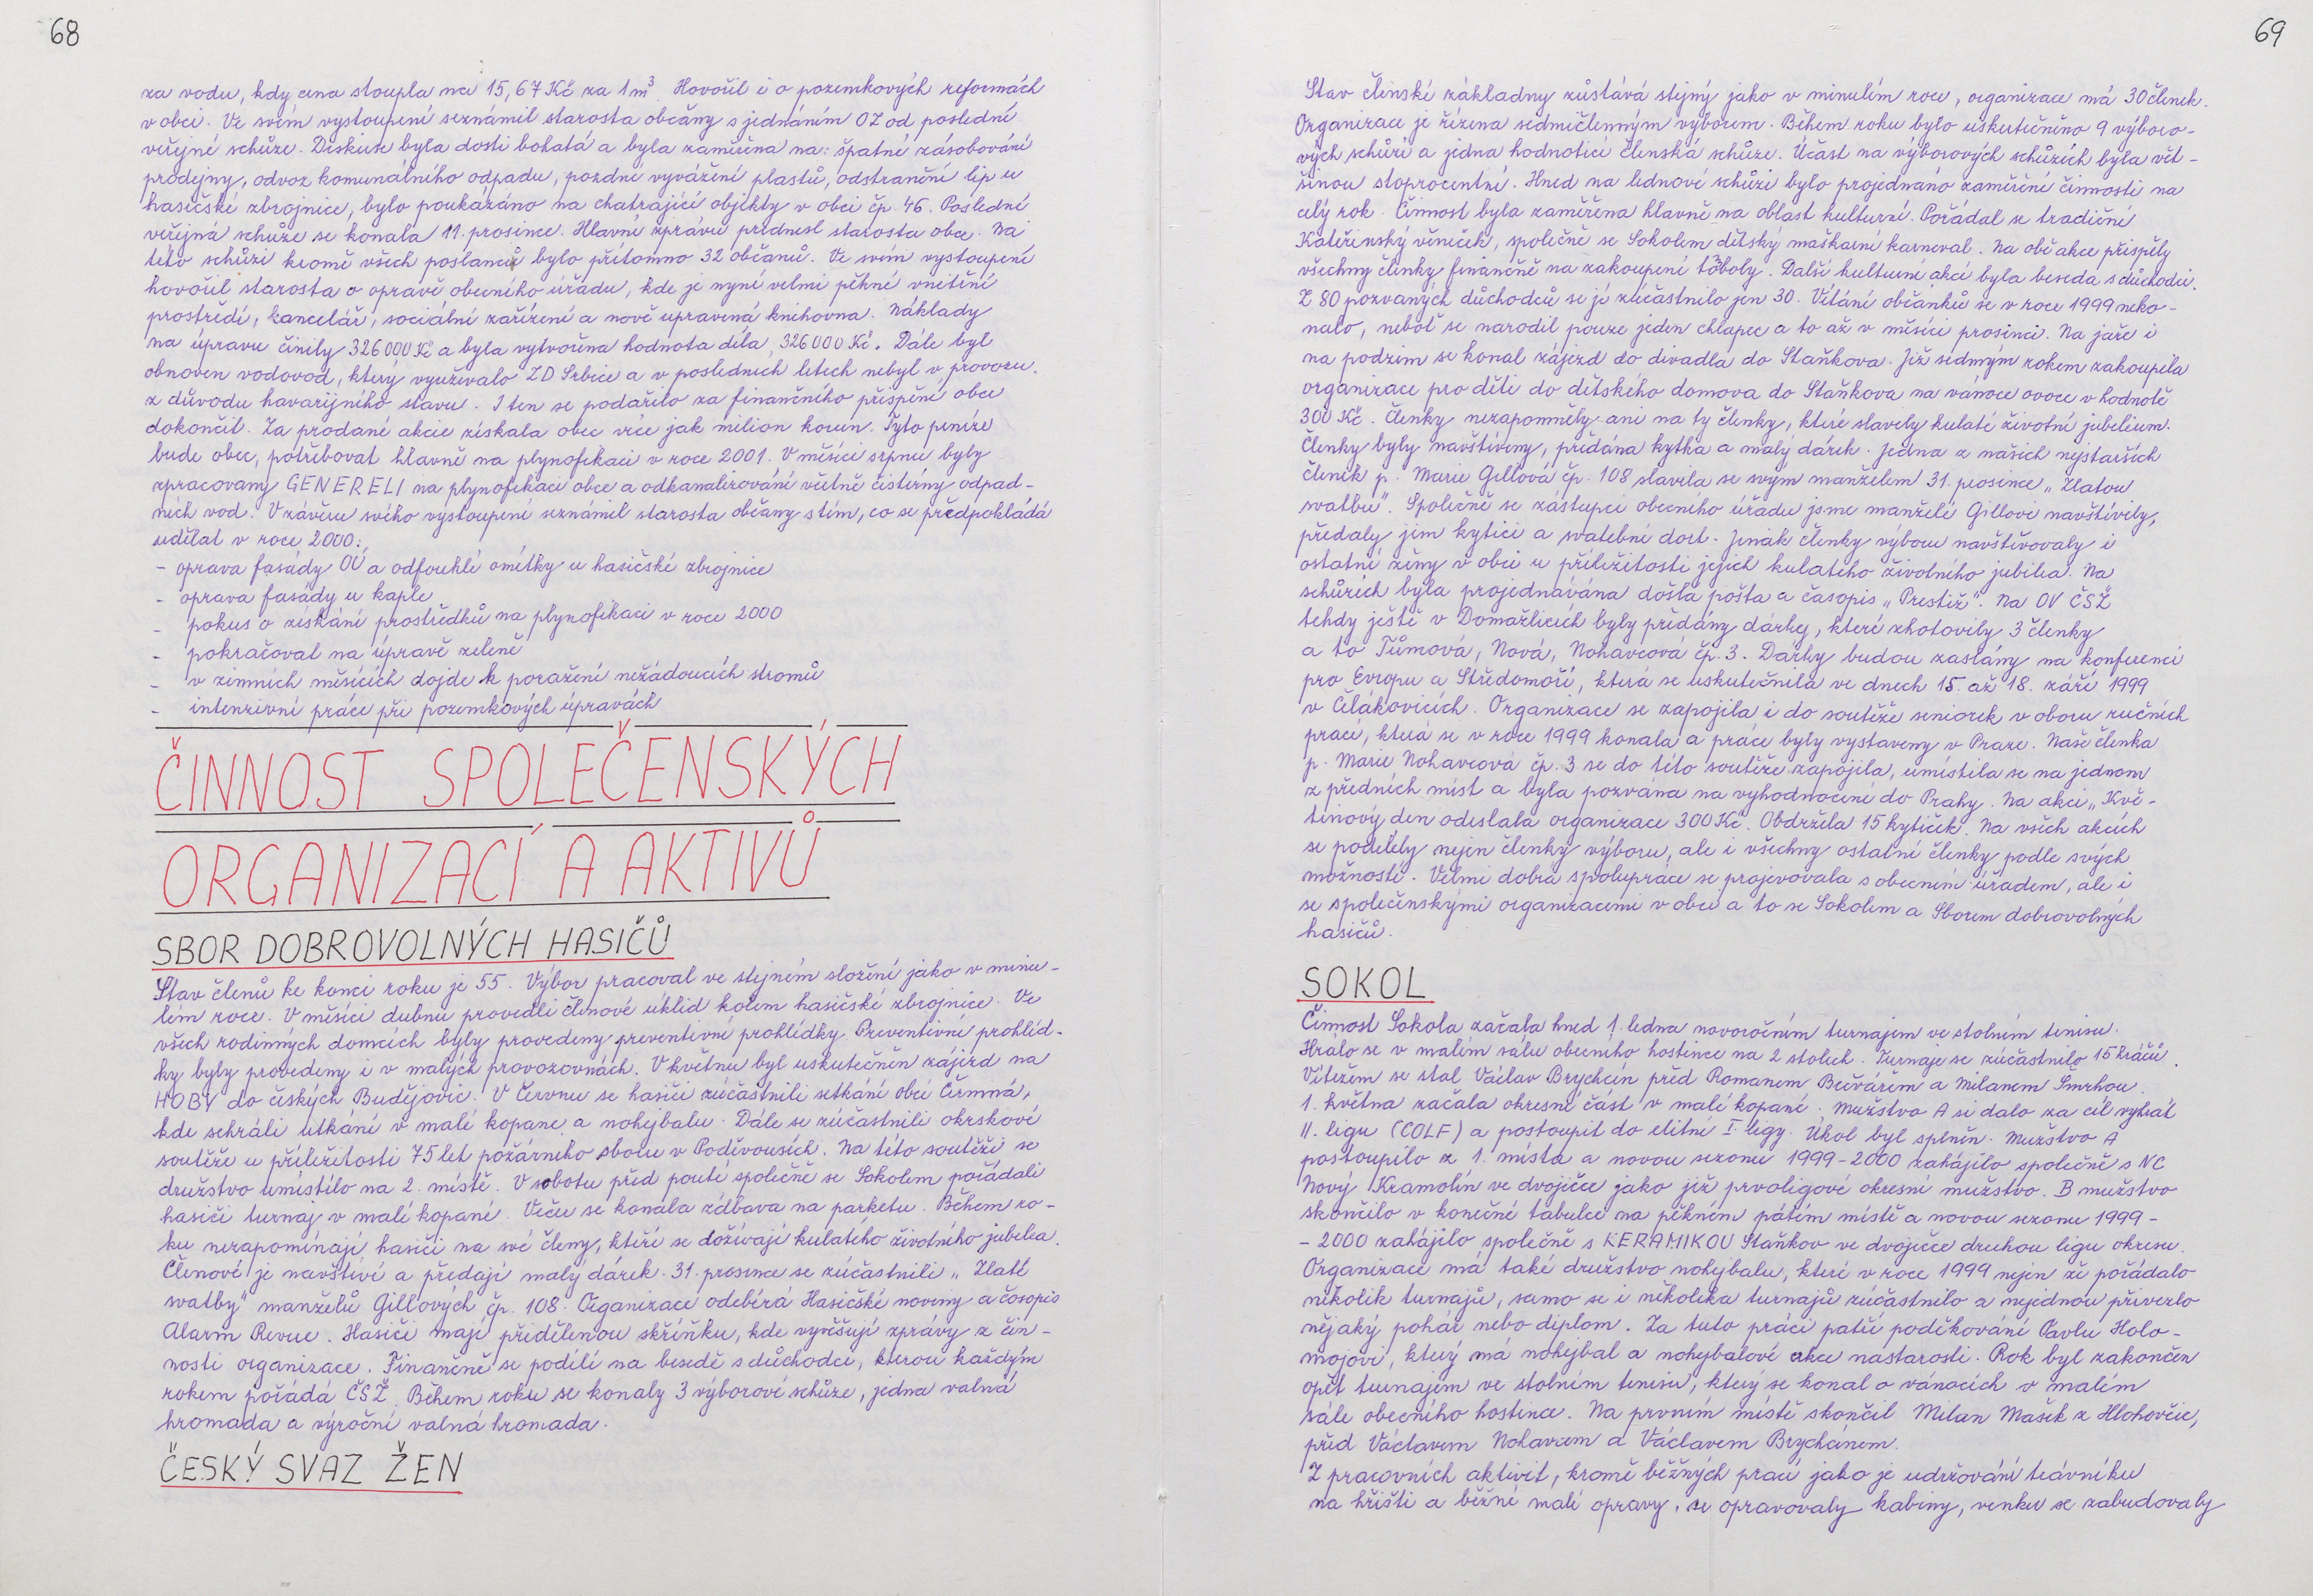 68
za vodu, kdy cena stoupla na 15,67 Kč za 1 m³. Hovořil i o pozemkových reformách
v obci. Ve svém vystoupení seznámil starosta občany s jednáním OZ od poslední
veřejné schůze. Diskuse byla dosti bohatá a byla zaměřena na: špatné zásobování
prodejny, odvoz komunálního odpadu, pozdní vyvážení plastů, odstranění lip u
hasičské zbrojnice, bylo poukázáno na chatrající objekty v obci čp. 46. Poslední
veřejná schůze se konala 11. prosince. Hlavní zprávu přednesl starosta obce. Na
této schůzi kromě všech poslanců bylo přítomno 32 občanů. Ve svém vystoupení
hovořil starosta o opravě obecního úřadu, kde je nyní velmi pěkné vnitřní
prostředí, kancelář, sociální zařízení a nově upravená knihovna. Náklady
na úpravu činily 326 000 Kč a byla vytvořena hodnota díla 326 000 Kč. Dále byl
obnoven vodovod, který využívalo ZD Srbice a v posledních letech nebyl v provozu
z důvodu havarijního stavu. I ten se podařilo za finančního přispění obce
dokončit. Za prodané akcie získala obec více jak milion korun. Tyto peníze
bude obec, potřebovat hlavně na plynofikaci v roce 2001. V měsíci srpnu byly
zpracovany GENERELI na plynofikaci obce a odkanalizování včetně čistírny odpad-
ních vod. V závěru svého vystoupení seznámil starosta občany s tím, co se předpokládá
udělat v roce 2000:
- oprava fasády OÚ a odfouklé omítky u hasičské zbrojnice
- oprava fasády u kaple
- pokus o získání prostředků na plynofikaci v roce 2000
- pokračovat na úpravě zeleně
- v zimních měsících dojde k poražení nežádoucích stromů
- intenzivní práce při pozemkových úpravách
ČINNOST SPOLEČENSKÝCH
ORGANIZACÍ A AKTIVŮ
SBOR DOBROVOLNÝCH HASIČŮ
Stav členů ke konci roku je 55. Výbor pracoval ve stejném složení jako v minu-
lém roce. V měsíci dubnu provedli členové úklid kolem hasičské zbrojnice. Ve
všech rodinných domcích byly provedeny preventivní prohlídky. Preventivní prohlíd-
ky byly provedeny i v malých provozovnách. V květnu byl uskutečněn zájezd na
HOBY do českých Budějovic. V Červnu se hasiči zúčastnili setkání obcí Čermná,
kde sehráli utkání v malé kopané a nohejbalu. Dále se zúčastnili okrskové
soutěže u příležitosti 75 let požárního sboru v Poděvousích. Na této soutěži se
družstvo umístilo na 2. místě. V sobotu před poutí společně se Sokolem pořádali
hasiči turnaj v malé kopané. Večer se konala zábava na parketu. Během ro-
ku nezapomínají hasiči na své členy, kteří se dožívají kulatého životního jubilea.
Členové je navštíví a předají malý dárek. 31. prosince se zúčastnili „ Zlaté
svatby" manželů Gillových čp. 108. Organizace odebírá Hasičské noviny a časopis
Alarm Revue. Hasiči mají přidělenou skříňku, kde vyvěšují zprávy z čin-
nosti organizace. Finančně se podílí na besedě s důchodci, kterou každým
rokem pořádá ČSŽ. Během roku se konaly 3 výborové schůze, jedna valná
hromada a výroční valná hromada.
ČESKÝ SVAZ ŽEN
69
Stav členské základny zůstává stejný jako v minulém roce, organizace má 30 členek.
Organizace je řízena sedmičlenným výborem. Během roku bylo uskutečněno 9 výboro-
vých schůzí a jedna hodnotící členská schůze. Účast na výborových schůzích byla vět-
šinou stoprocentní. Hned na lednové schůzi bylo projednáno zaměření činnosti na
celý rok. Činnost byla zaměřena hlavně na oblast kulturní. Pořádal se tradiční
Kateřinský věneček, společně se Sokolem dětský maškarní karneval. Na obě akce přispěly
všechny členky finančně na zakoupení tomboly. Další kulturní akcí byla beseda s důchodci.
Z 80 pozvaných důchodců se jí zúčastnilo jen 30. Vítání občánků se v roce 1999 neko-
nalo, neboť se narodil pouze jeden chlapec a to až v měsíci prosinci. Na jaře i
na podzim se konal zájezd do divadla do Staňkova. Již sedmým rokem zakoupila
organizace pro děti do dětského domova do Staňkova na vánoce ovoce v hodnotě
300 Kč. Členky nezapomněly ani na ty členky, které slavily kulaté životní jubilium.
Členky byly navštíveny, předána kytka a malý dárek. Jedna z našich nejstarších
členek p. Marie Gillová čp. 108 slavila se svým manželem 31. prosince „ Zlatou
svatbu". Společně se zástupci obecního úřadu jsme manželé Gillovi navštívily,
předaly jim kytici a svatební dort. Jinak členky výboru navštěvovaly i
ostatní ženy v obci u příležitosti jejich kulatého životního jubilea. Na
schůzích byla projednávána došlá pošta a časopis „ Prestiž". Na OV ČSŽ
tehdy ještě v Domažlicích byly předány dárky, které zhotovily 3 členky
a to Tůmová, Nová, Nohavcová čp. 3. Dárky budou zaslány na konferenci
pro Evropu a Středomoří, která se uskutečnila ve dnech 15. až 18. září 1999
v Čelákovicích. Organizace se zapojila i do soutěže seniorek v oboru ručních
prací, která se v roce 1999 konala a práce byly vystaveny v Praze. Naše členka
p. Marie Nohavcová čp. 3 se do této soutěže zapojila, umístila se na jednom
z předních míst a byla pozvána na vyhodnocení do Prahy. Na akci „ Kvě-
tinový den odeslala organizace 300 Kč. Obdržela 15 kytiček. Na všech akcích
se podílely nejen členky výboru, ale i všechny ostatní členky podle svých
možností. Velmi dobrá spolupráce se projevovala s obecním úřadem, ale i
se společenskými organizacemi v obci a to se Sokolem a Sborem dobrovolných
hasičů.
SOKOL
Činnost Sokola začala hned 1. ledna novoročním turnajem ve stolním tenisu.
Hrálo se v malém sálu obecního hostince na 2 stolech. Turnaje se zúčastnilo 15 hráčů.
Vítězem se stal Václav Brychcín před Romanem Bečvářem a Milanem Smrhou.
1. května začala okresní část v malé kopané. Mužstvo A si dalo za cíl vyhrát
II. ligu (COLF) a postoupit do elitní I. ligy. Úkol byl splněn. Mužstvo A
postoupilo z 1. místa a novou sezonu 1999-2000 zahájilo společně s NC
Nový Kramolín ve dvojičce jako již prvoligové okresní mužstvo. B mužstvo
skončilo v konečné tabulce na pěkném pátém místě a novou sezonu 1999-
- 2000 zahájilo společně s KERAMIKOU Staňkov ve dvojičce druhou ligu okresu.
Organizace má také družstvo nohejbalu, které v roce 1999 nejen že pořádalo
několik turnajů, samo se i několika turnajů zúčastnilo a nejednou přivezlo
nějaký pohár nebo diplom. Za tuto práci patří poděkování Pavlu Holo-
mojovi, který má nohejbal a nohejbalové akce nastarosti. Rok byl zakončen
opět turnajem ve stolním tenisu, který se konal o vánocích v malém
sále obecního hostince. Na prvním místě skončil Milan Mašek z Hlohovčic,
před Václavem Nohavcem a Václavem Brychcínem.
Z pracovních aktivit, kromě běžných prací jako je udržování trávníku
na hřišti a běžné malé opravy, se opravovaly kabiny, venku se zabudovaly